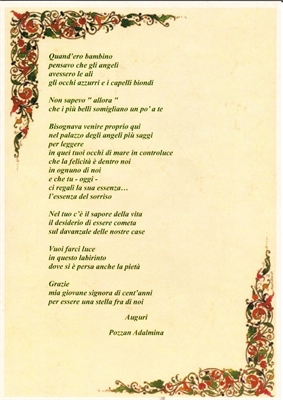 Quand'ero bambino
pensavo che gli angeli
avessero le ali
gli occhi azzurri e i capelli biondi
Non sapevo " allora "
che i più belli somigliano un po' a te
Bisognava venire proprio qui
nel palazzo degli angeli più saggi
per leggere
in quei tuoi occhi di mare in controluce
che la felicità è dentro noi
in ognuno di noi
e che tu - oggi -
ci regali la sua essenza…
l'essenza del sorriso
Nel tuo c'è il sapore della vita
il desiderio di essere cometa
sul davanzale delle nostre case
Vuoi farci luce
in questo labirinto
dove si è persa anche la pietà
Grazie
mia giovane signora di cent'anni
per essere una stella fra di noi
Auguri
Pozzan Adalmina